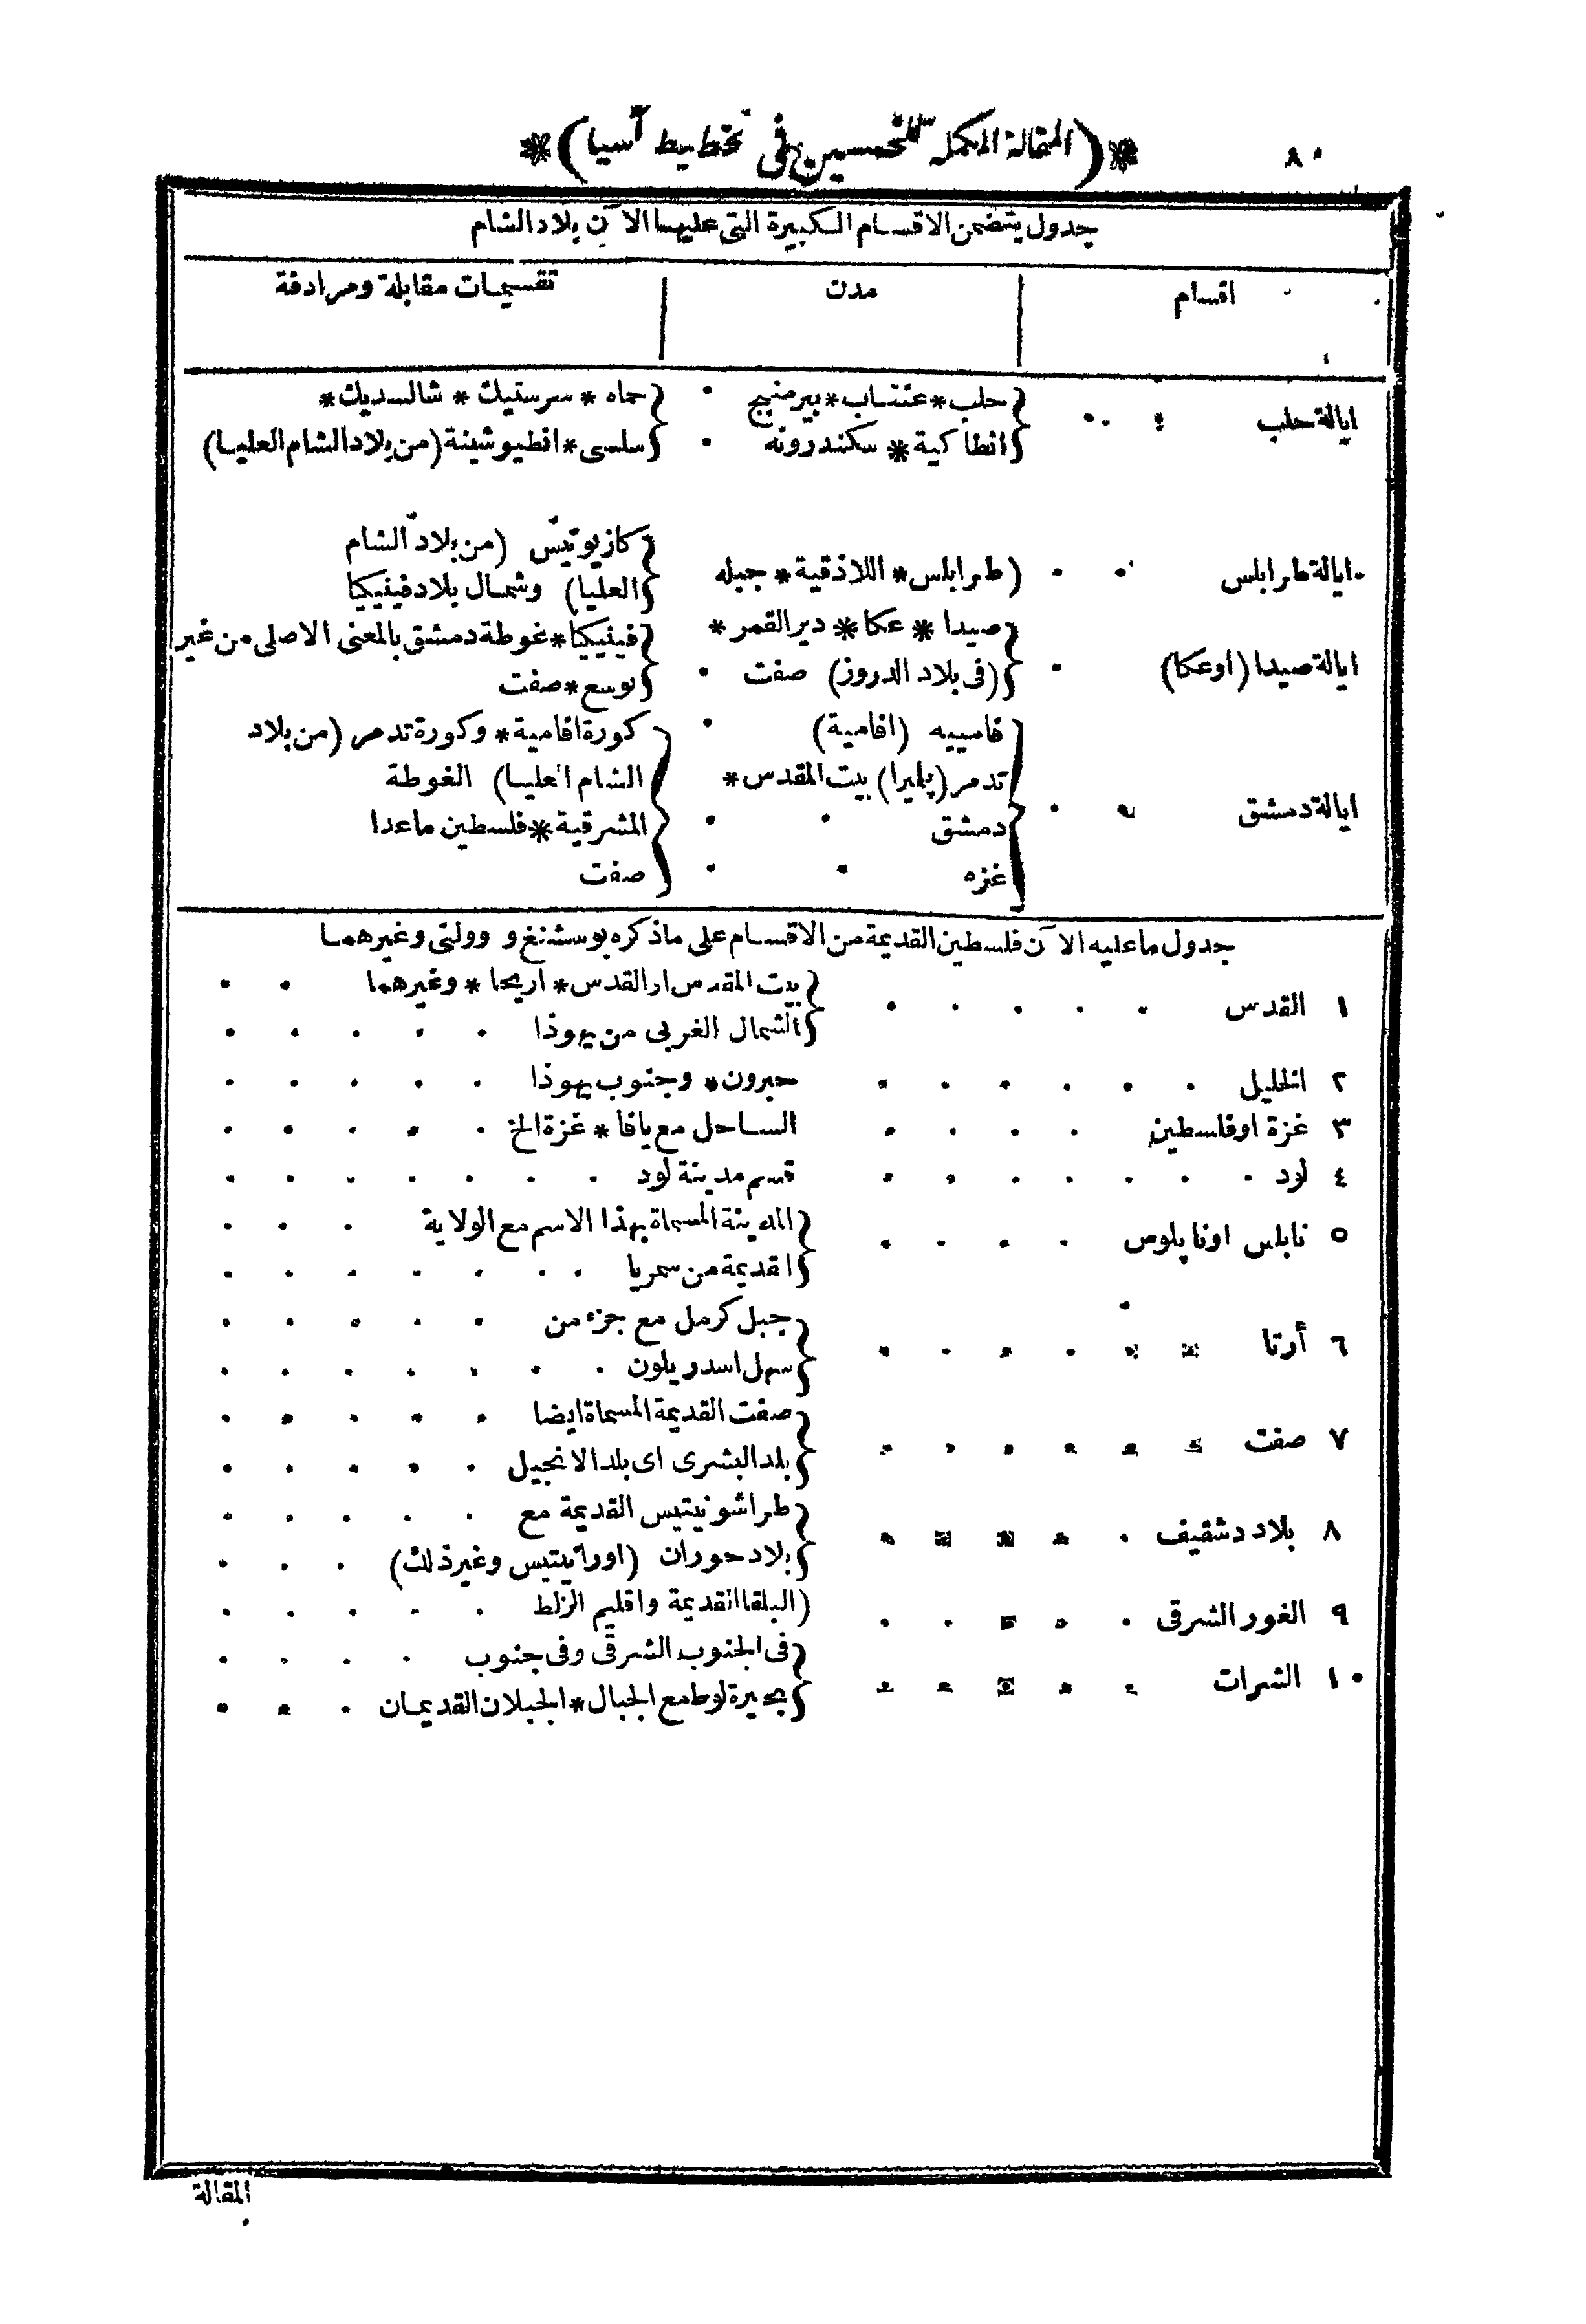 ٨٠
*(المقالة المكملة للخمسين في تخطيط آسيا)*
جدول يتضمن الاقسام الكبيرة التى عليها الآن بلاد الشام
اقسام مدن تقسيمات مقابلة ومرادفة
ايالة حلب
حلب * عنتاب * بير منبج
انطاكية * سكندرونه
حماه * سرستيك * شالسديك *
سلسى * انطيوشينة (من بلاد الشام العليا)
ايالة طرابلس
(طرابلس * اللاذقية * جبله
كازيوتيس (من بلاد الشام
العليا) وشمال بلاد فينيكيا
ايالة صيدا (اوعكا)
صيدا * عكا * دير القمر *
(فى بلاد الدروز) صفت
فينيكيا * غوطة دمشق بالمعنى الاصلى من غير
توسع * صفت
ايالة دمشق
فاسييه (افامية)
تدمر (پلميرا) بيت المقدس *
دمشق
غزه
كورة افامية * وكورة تدمر (من بلاد
الشام العليا) الغوطة
المشرقية * فلسطين ماعدا
صفت
جدول ماعليه الآن فلسطين القديمة من الاقسام على ماذكره بوسشنغ و وولنى وغيرهما
١ القدس
بيت المقدس او القدس * اريحا * وغيرهما
الشمال الغربى من يهوذا
٢ الخليل حبرون * وجنوب يهوذا
٣ غزة اوفلسطين الساحل مع يافا * غزة الخ
٤ لود قسم مدينة لود
٥ نابلس اوناپلوس
المدينة المسماة بهذا الاسم مع الولاية
القديمة من سمريا
٦ أرتا
جبل كرمل مع جزء من
سهل اسدريلون
٧ صفت
صفت القديمة المسماة ايضا
بلد البشرى اى بلد الانجيل
٨ بلاد دشقيف
طراشونيتيس القديمة مع
بلاد حوران (اورانيتيس وغير ذلك)
٩ الغور الشرقى (البلقا القديمة واقليم الزلط
١٠ الشرات
فى الجنوب الشرقى وفى جنوب
بحيرة لوط مع الجبال * الجبلان القديمان
المقالة